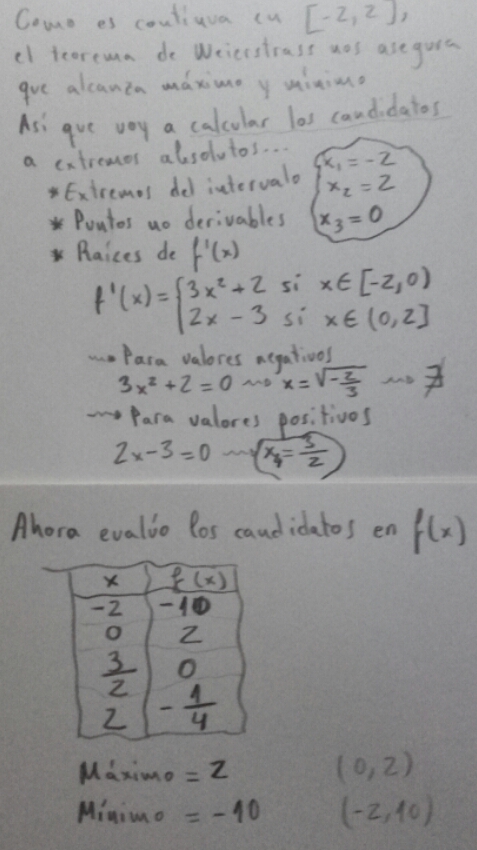 Como es continua en [-2,2],
el teorema de Weierstrass nos asegura
que alcanza máximo y mínimo
Así que voy a calcular los candidatos
a extremos absolutos...
* Extremos del intervalo x₁ = -2
x₂ = 2
* Puntos no derivables x₃ = 0
* Raíces de f'(x)
f'(x) = { 3x² + 2 si x ∈ [-2,0)
2x - 3 si x ∈ (0,2]
⇝ Para valores negativos
3x² + 2 = 0 ⇝ x = √-2/3 ⇝ ∄
⇝ Para valores positivos
2x - 3 = 0 ⇝ x₄ = 3/2
Ahora evalúo los candidatos en f(x)
x f(x)
-2 -10
0 2
3/2 0
2 -1/4
Máximo = 2 (0,2)
Mínimo = -10 (-2,10)